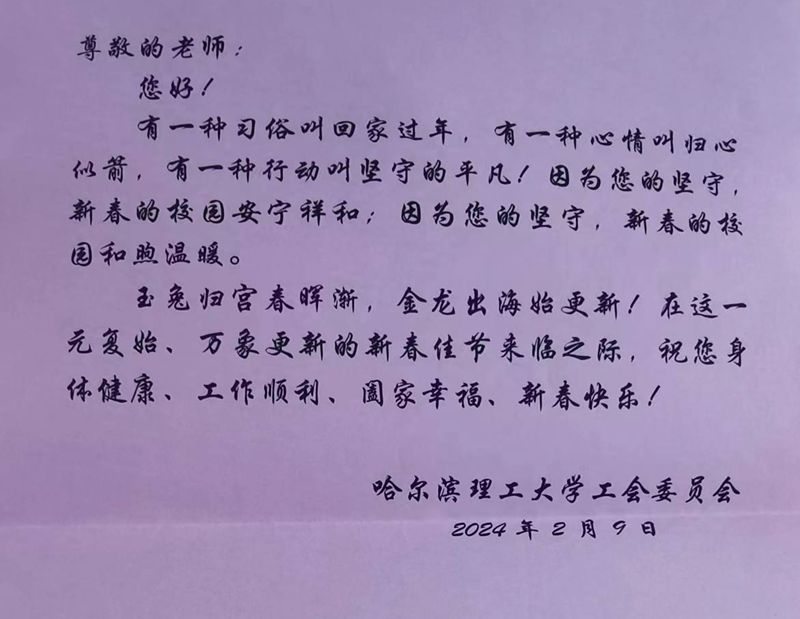 尊敬的老师：
您好！
有一种习俗叫回家过年，有一种心情叫归心
似箭，有一种行动叫坚守的平凡！因为您的坚守，
新春的校园安宁祥和；因为您的坚守，新春的校
园和煦温暖。
玉兔归宫春晖渐，金龙出海始更新！在这一
元复始、万象更新的新春佳节来临之际，祝您身
体健康、工作顺利、阖家幸福、新春快乐！
哈尔滨理工大学工会委员会
2024年2月9日